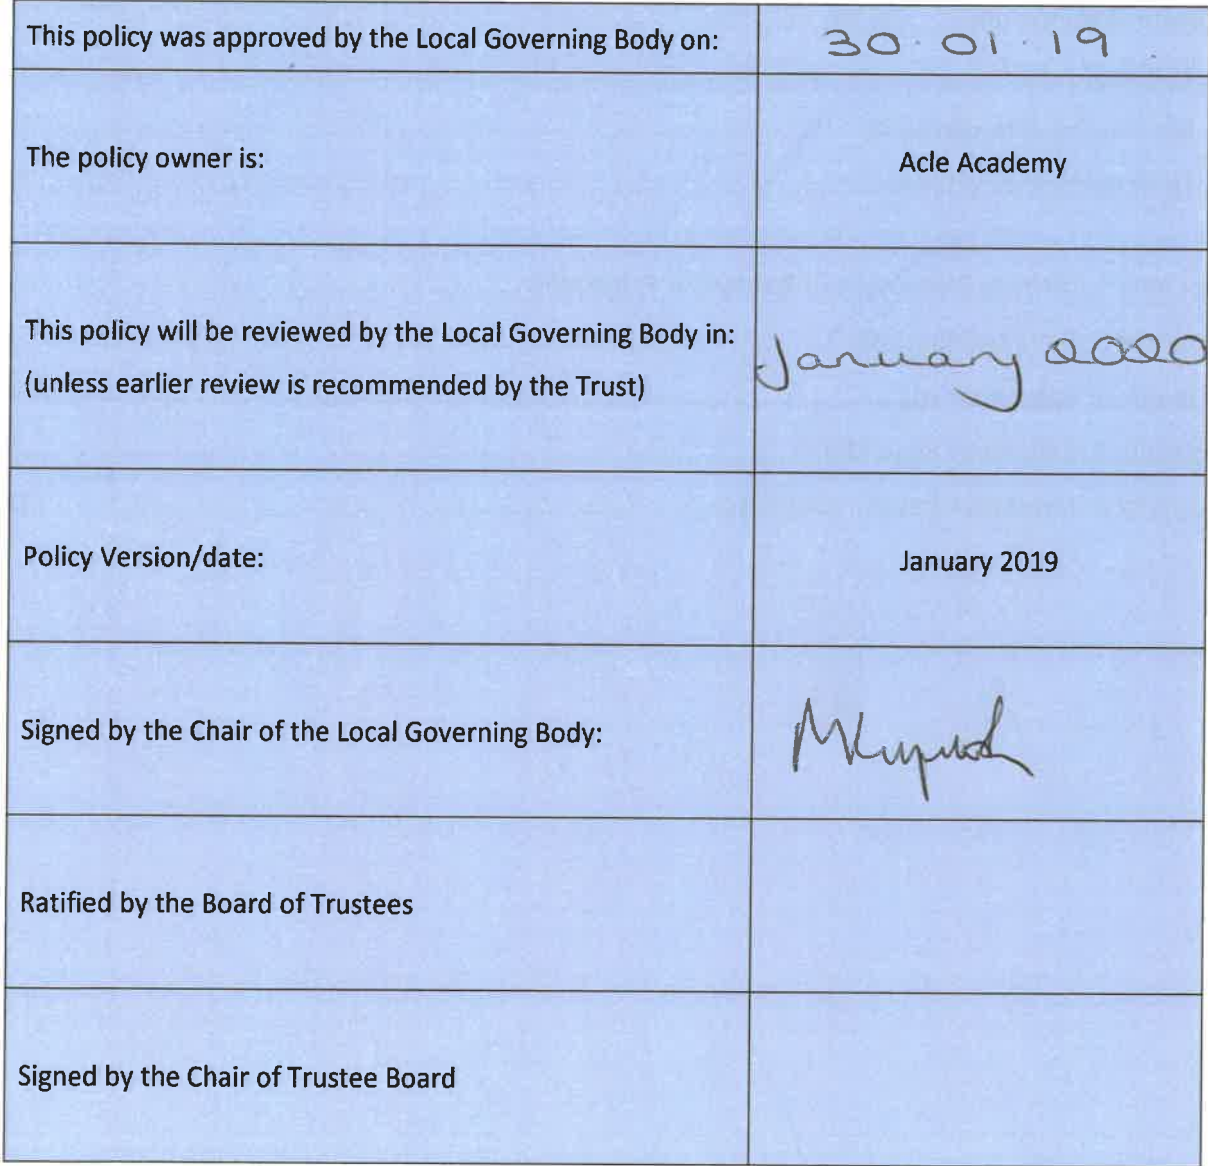 This policy was approved by the Local Governing Body on:
30.01.19
The policy owner is:
Acle Academy
This policy will be reviewed by the Local Governing Body in:
(unless earlier review is recommended by the Trust)
January 2020
Policy Version/date:
January 2019
Signed by the Chair of the Local Governing Body:
Ratified by the Board of Trustees
Signed by the Chair of Trustee Board